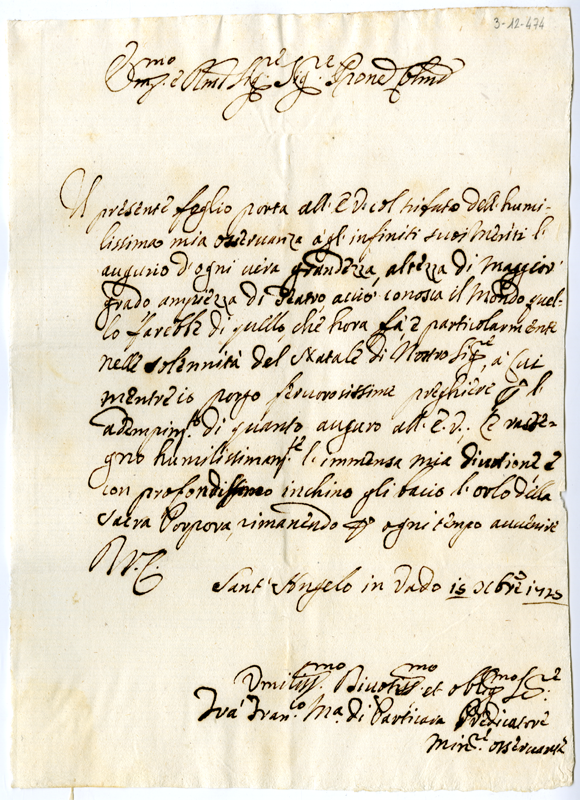 3-12-474
Em.mo e R.mo Sig.re Sig.re Prone Colmo
Il presente foglio porta all'E.V. col tributo dell'humi-
lissima mia osservanza a gl'infiniti suoi meriti l'
augurio d'ogni vera grandezza, altezza di maggior
grado ampiezza di Teatro acciò conosca il Mondo quel-
lo farebbe di quello, che hora fà, e particolarmente
nelle solennità del Natale di Nostro Sig.re, à cui
mentre io porgo fervorosissime preghiere p l'
adempim.to di quanto auguro all'E.V., Le rasse-
gno humilissimam.te l'immensa mia divotione e
con profondissimo inchino gli bacio l'orlo della
Sacra Porpora, rimanendo p ogni tempo avvenire
D.V.E.
Sant'Angelo in Vado 15 Xbre
Umiliss.mo Divotiss.mo et oblig.mo Se.re
Frà Fran.co Ma. di Particara Predicatore
Min.re osservante